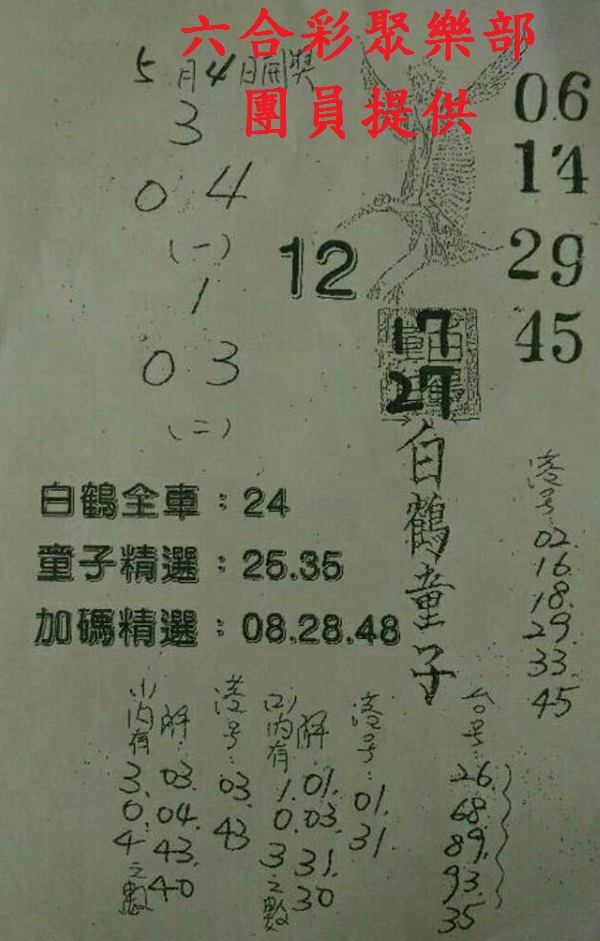 六合彩聚樂部
團員提供
5月4日開獎
3
0 4
(一)
1
0 3
(二)
12
06
14
29
45
17
27
白鶴童子
白鶴全車：24
童子精選：25.35
加碼精選：08.28.48
港号：
02.
16.
18.
29.
33.
45
(1)內有
3.
0.
4
之數
解：
03.
04.
43.
40
港号：
03.
43
(2)內有
1.
0.
3
之數
解：
01.
03.
31.
30
港号：
01.
31
台号：
26.
68.
89.
93.
35